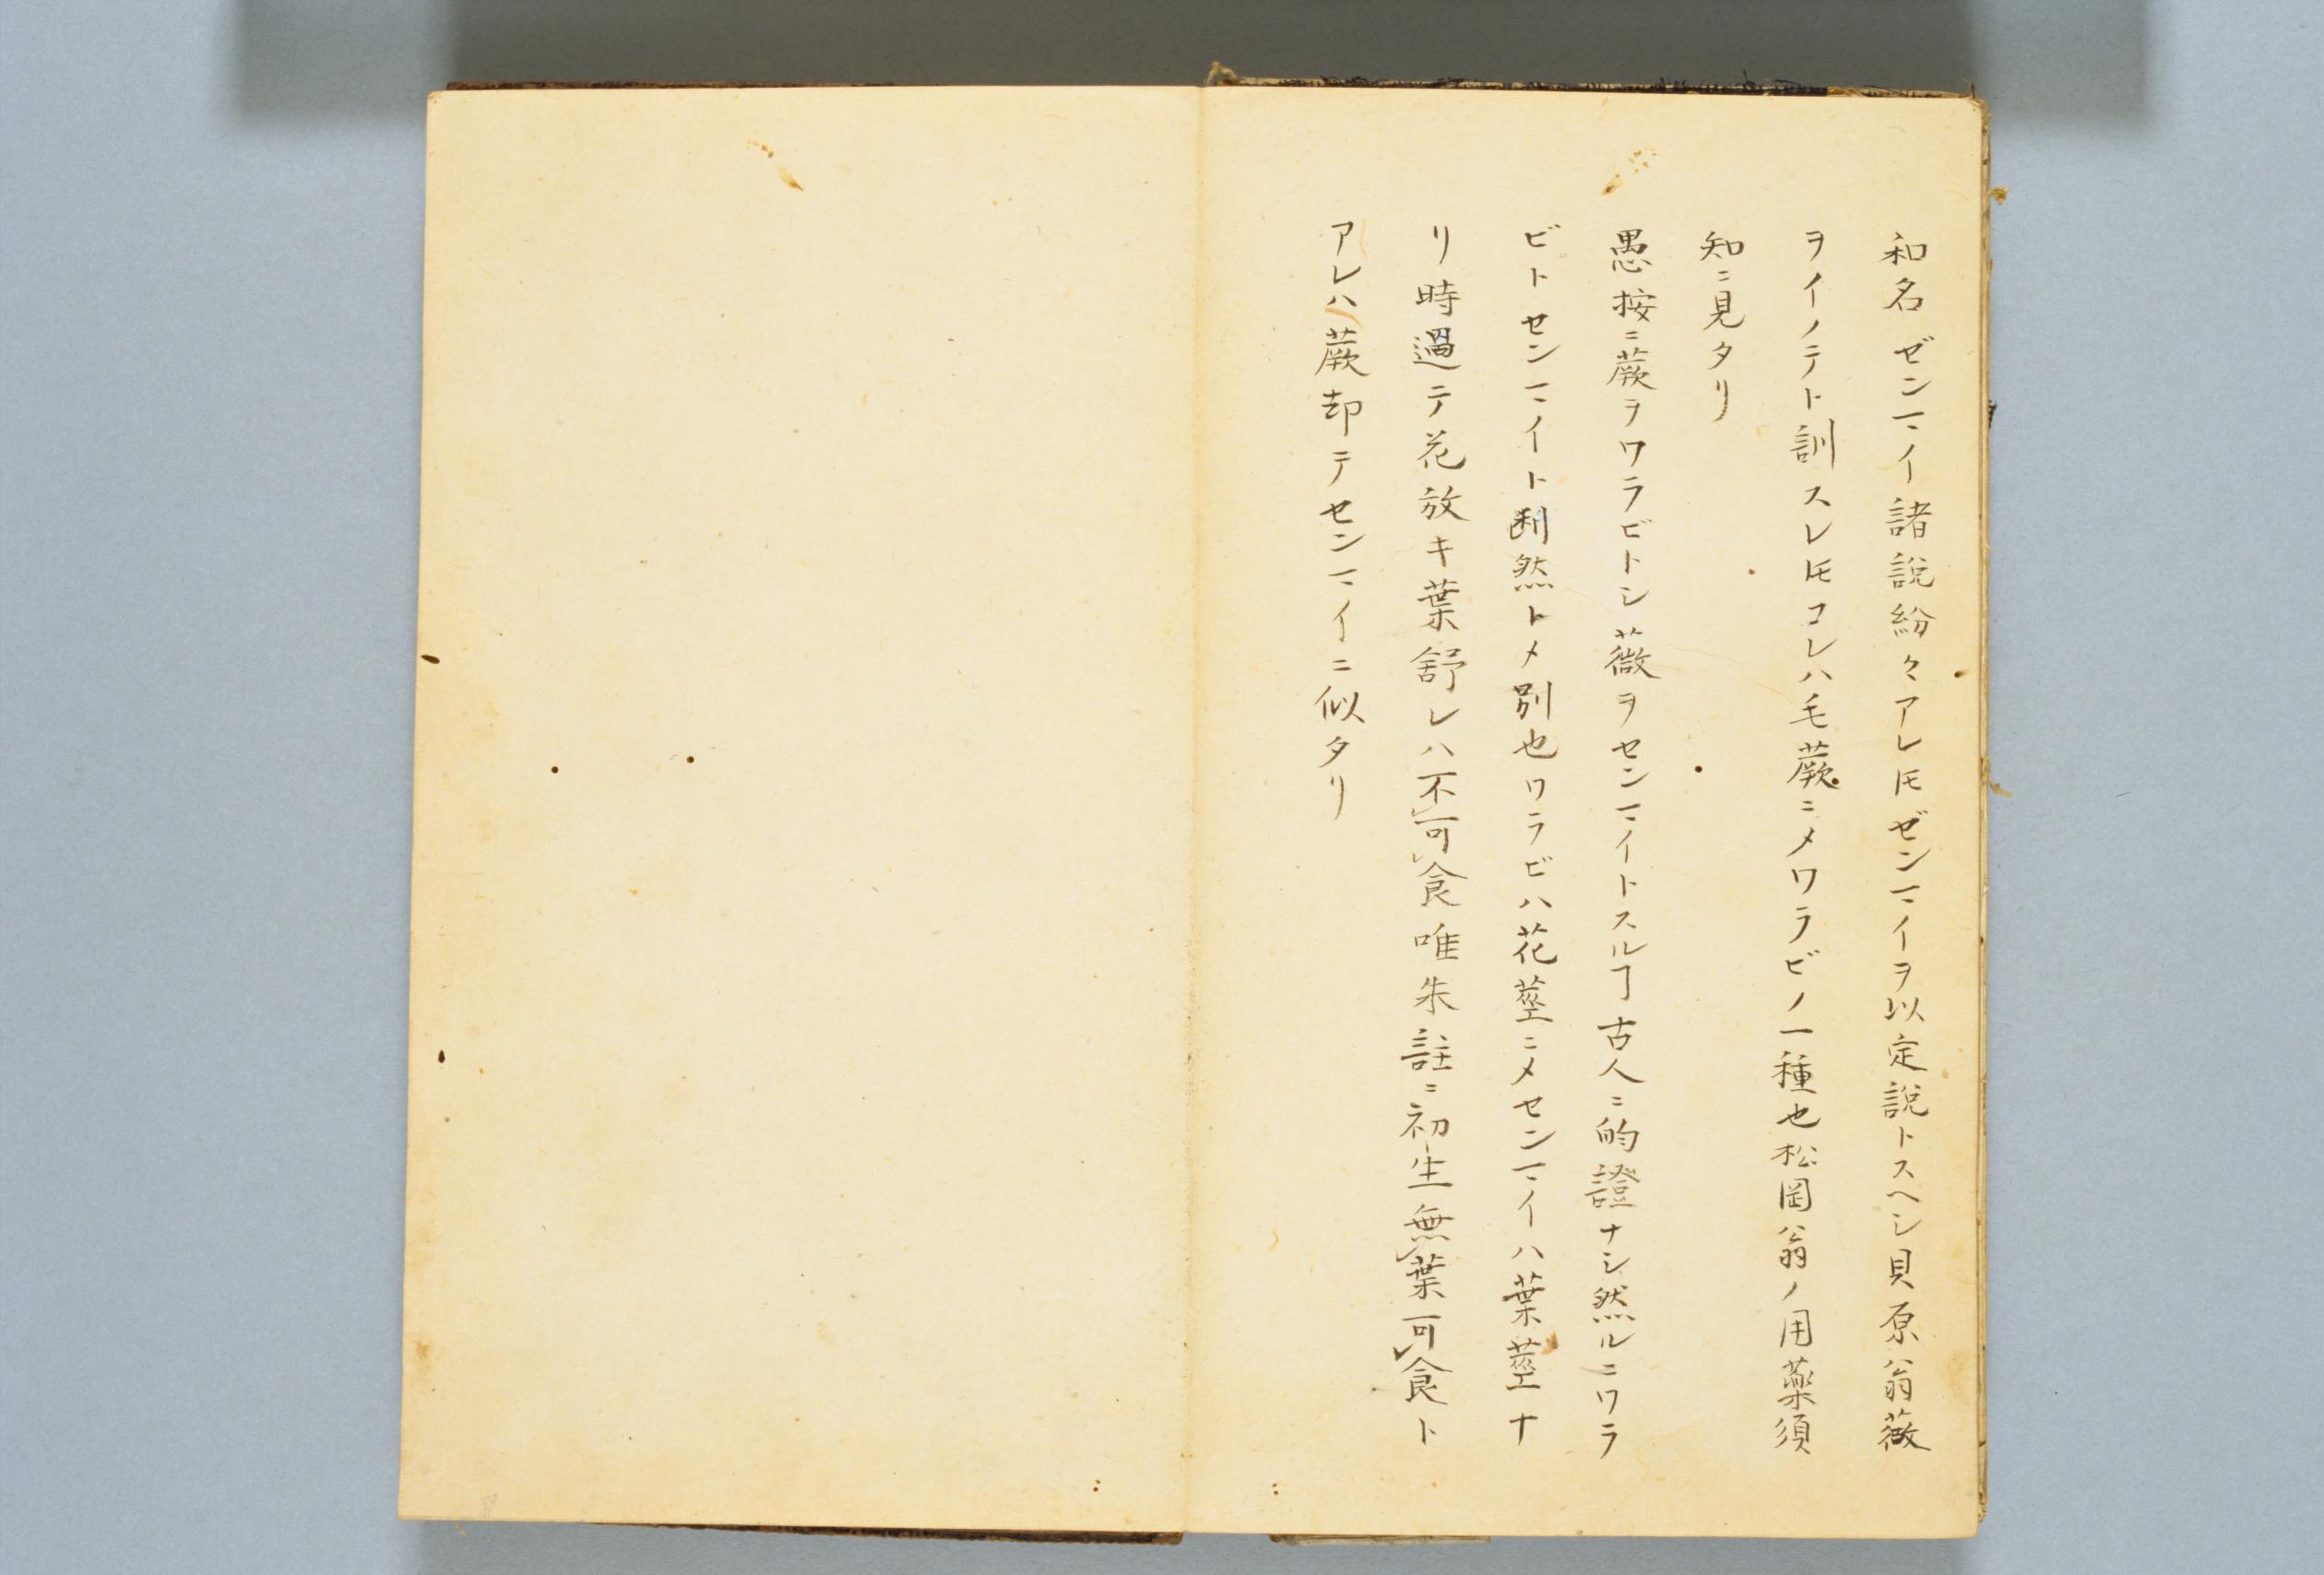 和名ゼンマイ諸説紛々アレ𪜈ゼンマイヲ以定説トスヘシ貝原翁薇
ヲイノテト訓スレ𪜈コレハ毛蕨ニ〆ワラビノ一種也松岡翁ノ用薬須
知ニ見タリ
愚按ニ蕨ヲワラビトシ薇ヲセンマイトスルヿ古人ニ的證ナシ然ルニワラ
ビトセンマイト判然ト〆別也ワラビハ花莖ニ〆センマイハ葉莖ナ
リ時過テ花放キ葉舒レハ不可食唯朱註ニ初生無葉可食ト
アレハ蕨却テセンマイニ似タリ